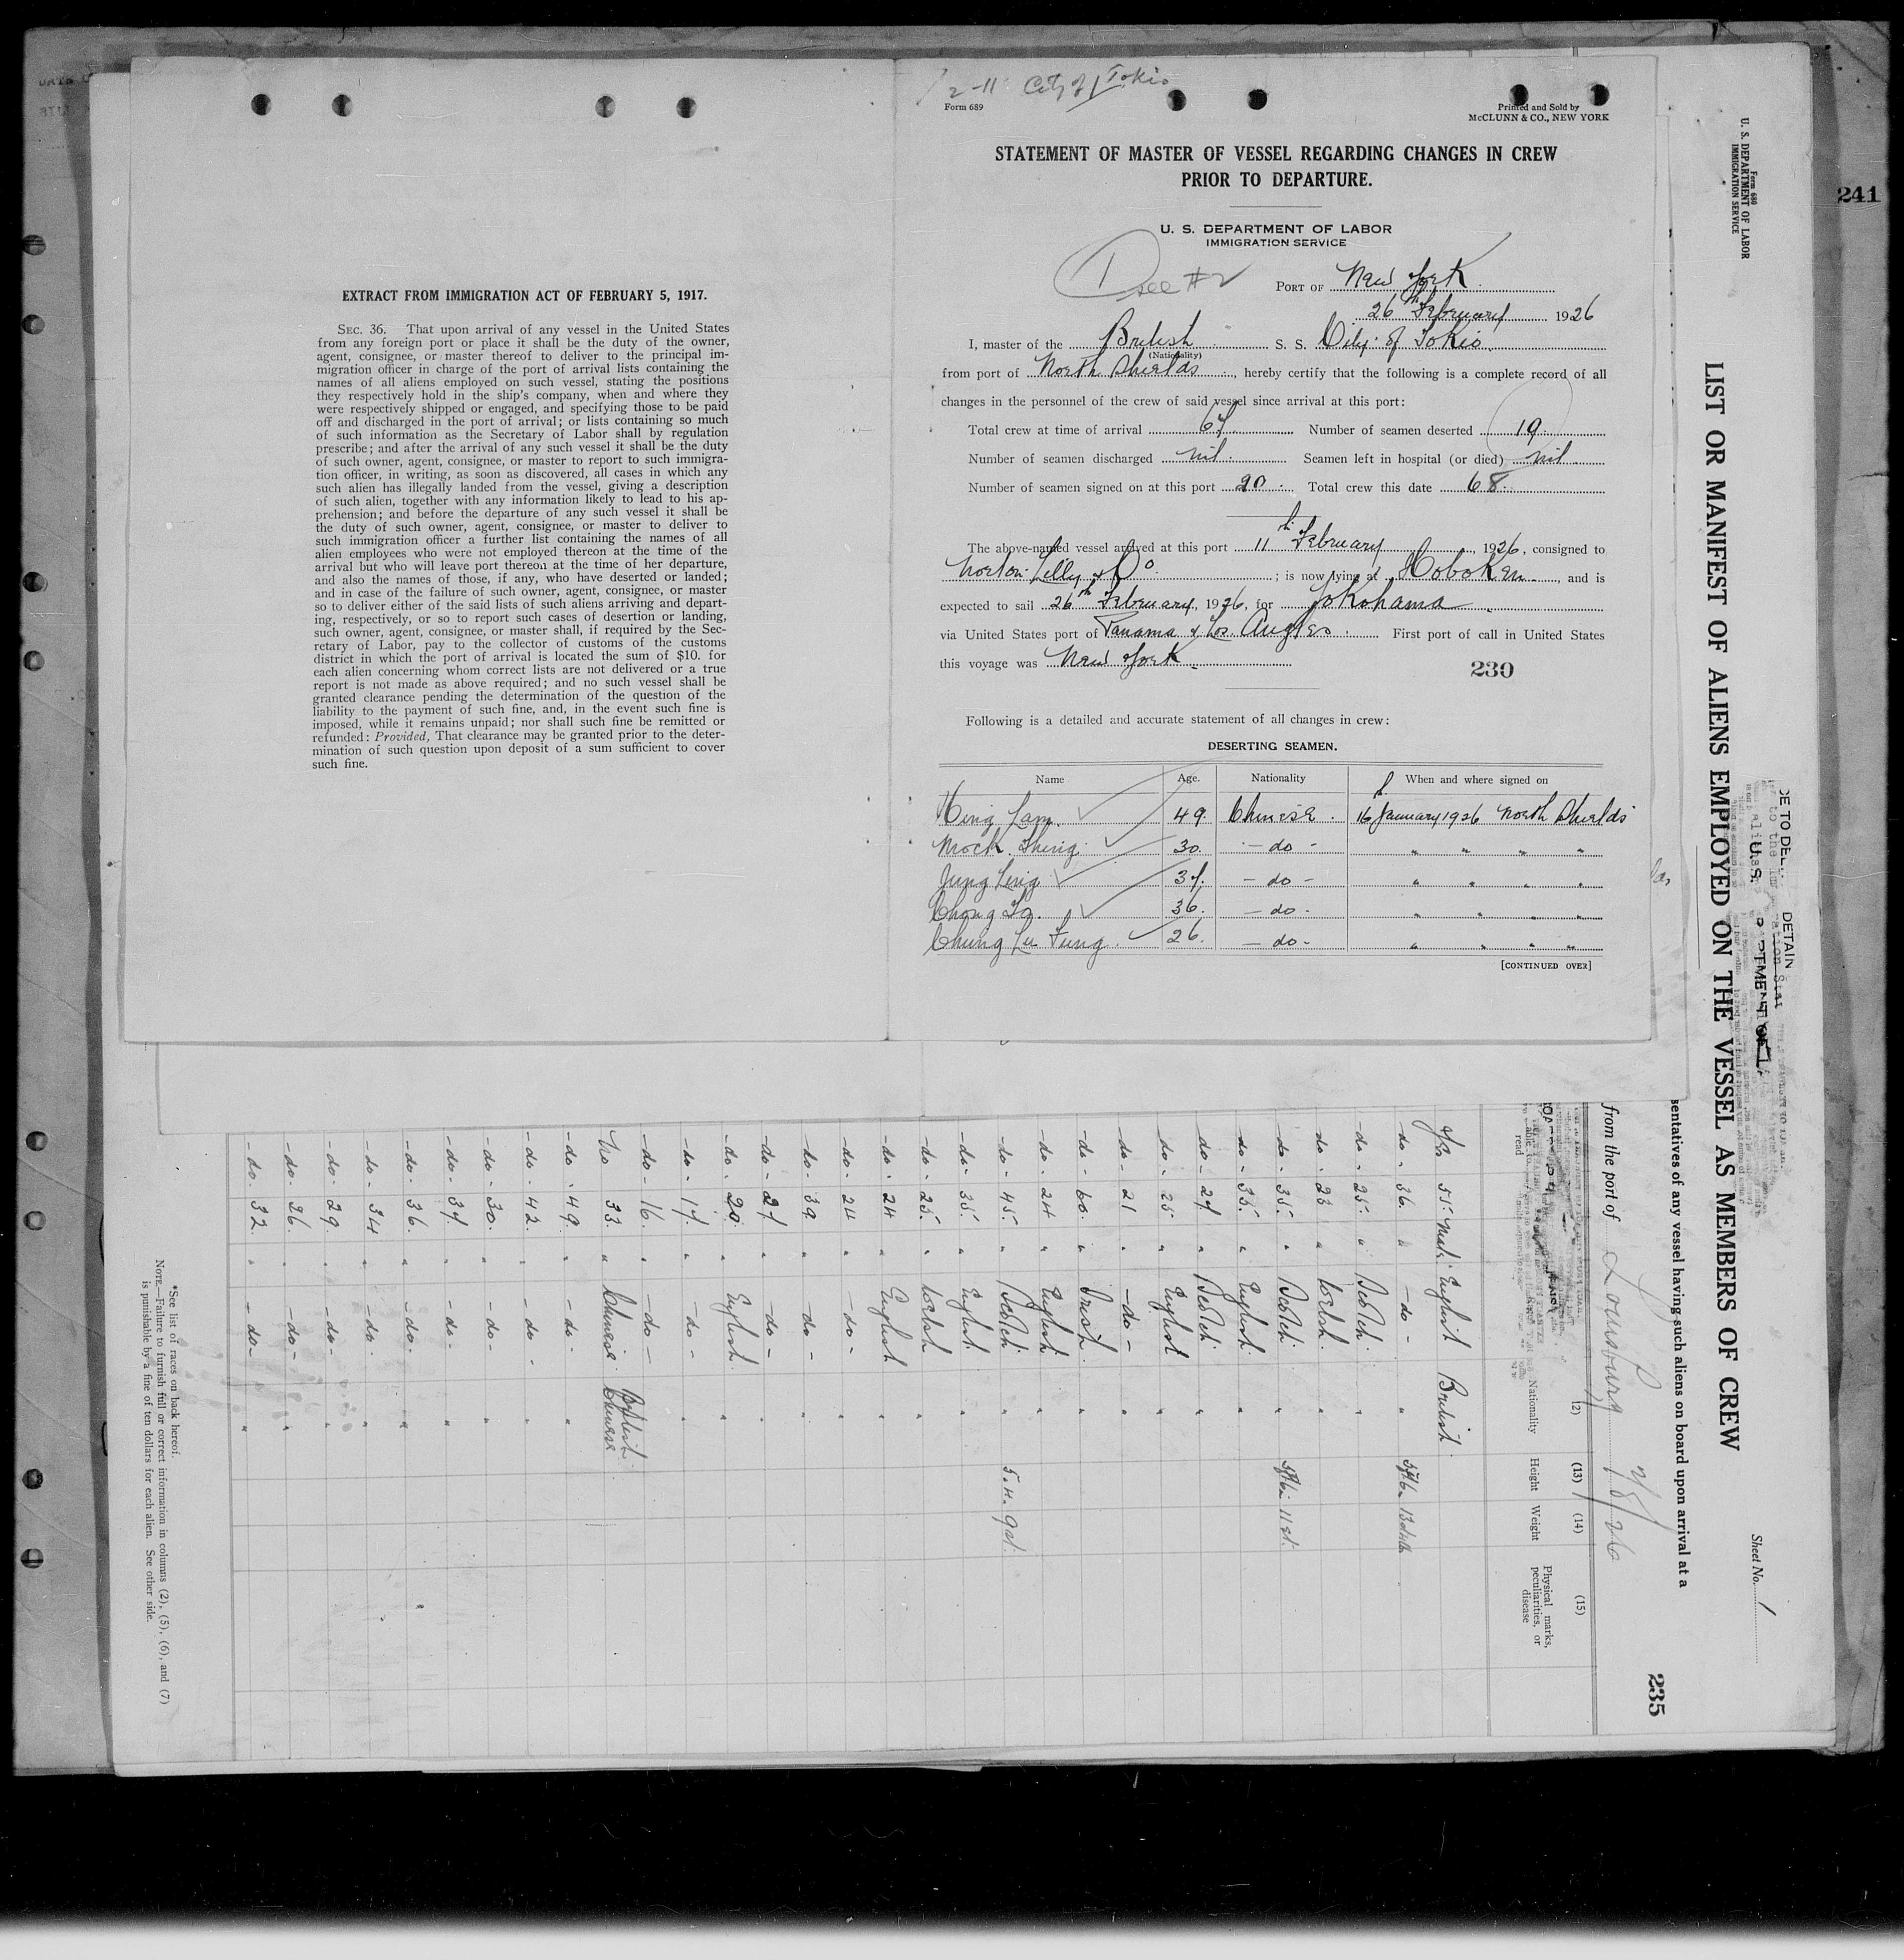 EXTRACT FROM IMMIGRATION ACT OF FEBRUARY 5, 1917.
SEC. 36. That upon arrival of any vessel in the United States
from any foreign port or place it shall be the duty of the owner,
agent, consignee, or master thereof to deliver to the principal im-
migration officer in charge of the port of arrival lists containing the
names of all aliens employed on such vessel, stating the positions
they respectively hold in the ship's company, when and where they
were respectively shipped or engaged, and specifying those to be paid
off and discharged in the port of arrival; or lists containing so much
of such information as the Secretary of Labor shall by regulation
prescribe; and after the arrival of any such vessel it shall be the duty
of such owner, agent, consignee, or master to report to such immigra-
tion officer, in writing, as soon as discovered, all cases in which any
such alien has illegally landed from the vessel, giving a description
of such alien, together with any information likely to lead to his ap-
prehension; and before the departure of any such vessel it shall be
the duty of such owner, agent, consignee, or master to deliver to
such immigration officer a further list containing the names of all
alien employees who were not employed thereon at the time of the
arrival but who will leave port thereon at the time of her departure,
and also the names of those, if any, who have deserted or landed;
and in case of the failure of such owner, agent, consignee, or master
so to deliver either of the said lists of such aliens arriving and depart-
ing, respectively, or so to report such cases of desertion or landing,
such owner, agent, consignee, or master shall, if required by the Sec-
retary of Labor, pay to the collector of customs of the customs
district in which the port of arrival is located the sum of $10. for
each alien concerning whom correct lists are not delivered or a true
report is not made as above required; and no such vessel shall be
granted clearance pending the determination of the question of the
liability to the payment of such fine, and, in the event such fine is
imposed, while it remains unpaid; nor shall such fine be remitted or
refunded: Provided, That clearance may be granted prior to the deter-
mination of such question upon deposit of a sum sufficient to cover
such fine.
2-11 City of Tokio
Form 689
Printed and Sold by
McCLUNN & CO., NEW YORK
STATEMENT OF MASTER OF VESSEL REGARDING CHANGES IN CREW
PRIOR TO DEPARTURE.
U. S. DEPARTMENT OF LABOR
IMMIGRATION SERVICE
see #2
PORT OF New York
26th February 1926
I, master of the British S. S. City of Tokio
(Nationality)
from port of North Shields, hereby certify that the following is a complete record of all
changes in the personnel of the crew of said vessel since arrival at this port:
Total crew at time of arrival 67 Number of seamen deserted 19.
Number of seamen discharged nil. Seamen left in hospital (or died) nil.
Number of seamen signed on at this port 20. Total crew this date 68.
The above-named vessel arrived at this port 11th February, 1926, consigned to
Norton Lilly & Co.; is now lying at Hoboken, and is
expected to sail 26th February, 1926, for Yokohama
via United States port of Panama & Los Angles. First port of call in United States
this voyage was New York.
230
Following is a detailed and accurate statement of all changes in crew:
DESERTING SEAMEN.
Name Age. Nationality When and where signed on
Hing Lam. 49. Chinese. 16 January 1926 North Shields
Mock Shing. 30. - do - " " " "
Jung Ling 37. - do - " " " "
Chong To. 36. - do - " " " "
Chung Lu Fung. 26. - do - " " " "
[CONTINUED OVER]
241
Form 680
U. S. DEPARTMENT OF LABOR
IMMIGRATION SERVICE
LIST OR MANIFEST OF ALIENS EMPLOYED ON THE VESSEL AS MEMBERS OF CREW
Sheet No. 1
sentatives of any vessel having such aliens on board upon arrival at a
235
from the port of Louisburg 2/8/26
read
(12) (13) (14) (15)
Nationality Height Weight Physical marks, peculiarities, or disease
Yes 55. Male English British
-do- 36. " -do- "
-do- 25. " Scotch. "
-do- 23 " Welsh. "
-do- 35. " Scotch. " 11 st.
-do- 35. " English. "
-do- 27. " Scotch. "
-do- 25 " English "
-do- 21 " -do- "
-do- 60. " Irish. "
-do- 24 " English "
-do- 45. " Scotch. " 5.4. 9 st.
-do- 35. " English. "
-do- 25. " Welsh "
-do- 24 " English "
-do- 24 " -do- "
-do- 39. " -do- "
-do- 27. " -do- "
-do- 20. " English. "
-do- 17. " -do- "
-do- 16. " -do- British
No 33. " Chinese. Chinese
-do- 49. " -do- "
-do- 42. " -do- "
-do- 30. " -do- "
-do- 37. " -do- "
-do- 36. " -do- "
-do- 34 " -do- "
-do- 29. " -do- "
-do- 26. " -do- "
-do- 32. " -do- "
*See list of races on back hereof.
NOTE.—Failure to furnish full or correct information in columns (2), (5), (6), and (7)
is punishable by a fine of ten dollars for each alien. See other side.